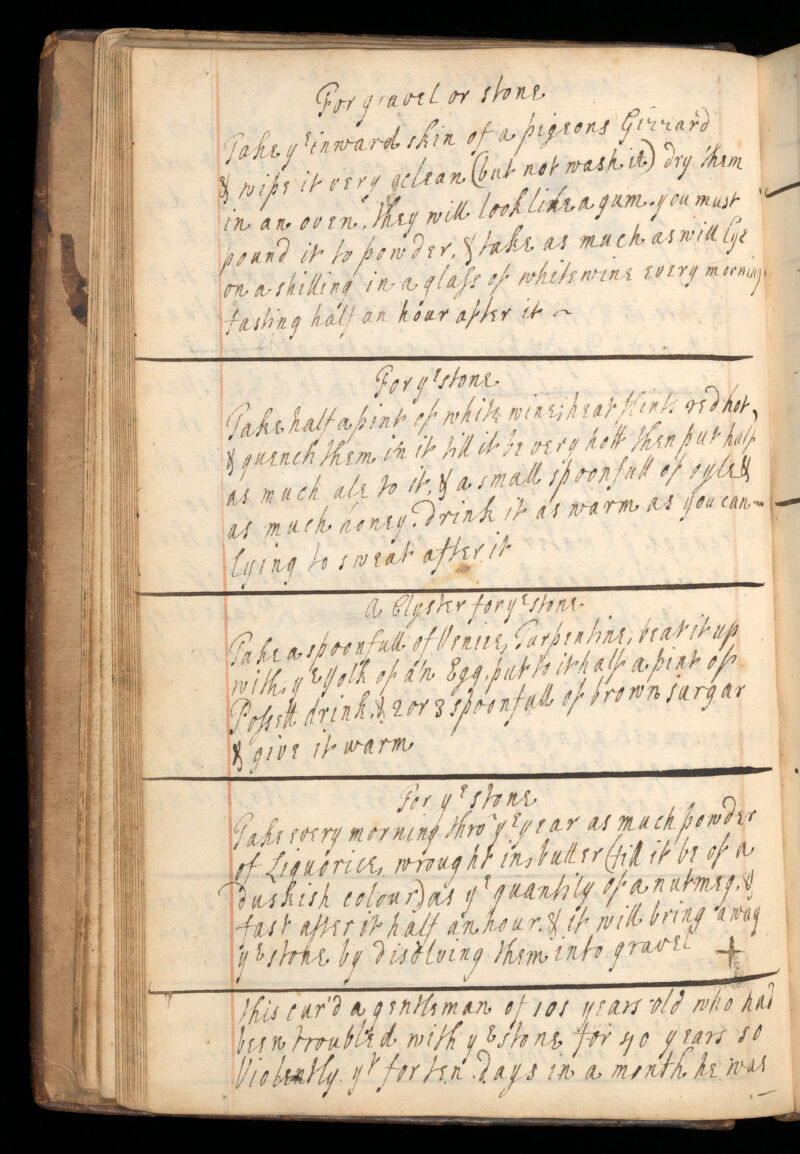 For gravel or stone
Take yᵉ inward skin of a pigeons Gizzard
& wipe it very clean (but not wash it) dry them
in an oven, they will look like a gum. you must
pound it to powder, & take as much as will lye
on a shilling in a glass of white wine every morning
fasting half an hour after it ~
For yᵉ stone
Take half a pint of white wine, heat flints red hot,
& quench them in it till it be very hott then put half
as much ale to it, & a small spoonfull of oyle &
as much honey. Drink it as warm as you can ~
lying to sweat after it
a Clyster for yᵉ stone
Take a spoonfull of Venice, Turpentine, beat it up
with, yᵉ yolk of an Egg, put to it half a pint of
Possett drink, & 2 or 3 spoonfull of brown surgar
& give it warm
For yᵉ stone
Take every morning thro' yᵉ year as much powder
of Liquorice, wrought in, butter (till it be of a
duskish colour) as yᵉ quantity of a nutmeg, &
fast after it half an hour. & it will bring away
yᵉ stone by disolving them into gravel +
this cur'd a gentleman of 101 years old who had
been troubled with yᵉ stone for 40 years so
Violently. yᵗ for ten days in a month he was